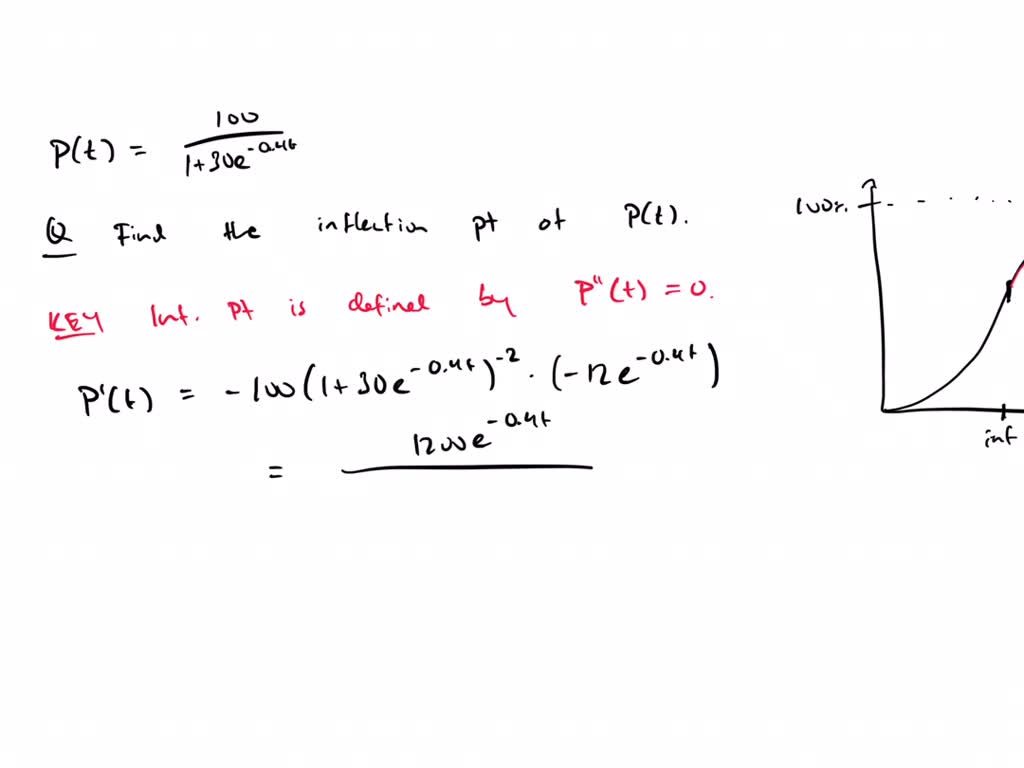 P(t) = 100 / 1+30e^-0.4t
Q Find the inflection pt of P(t).
KEY Inf. Pt is defined by P"(t) = 0.
P'(t) = -100(1+30e^-0.4t)^-2 · (-12e^-0.4t)
= 1200e^-0.4t
100%.
inf